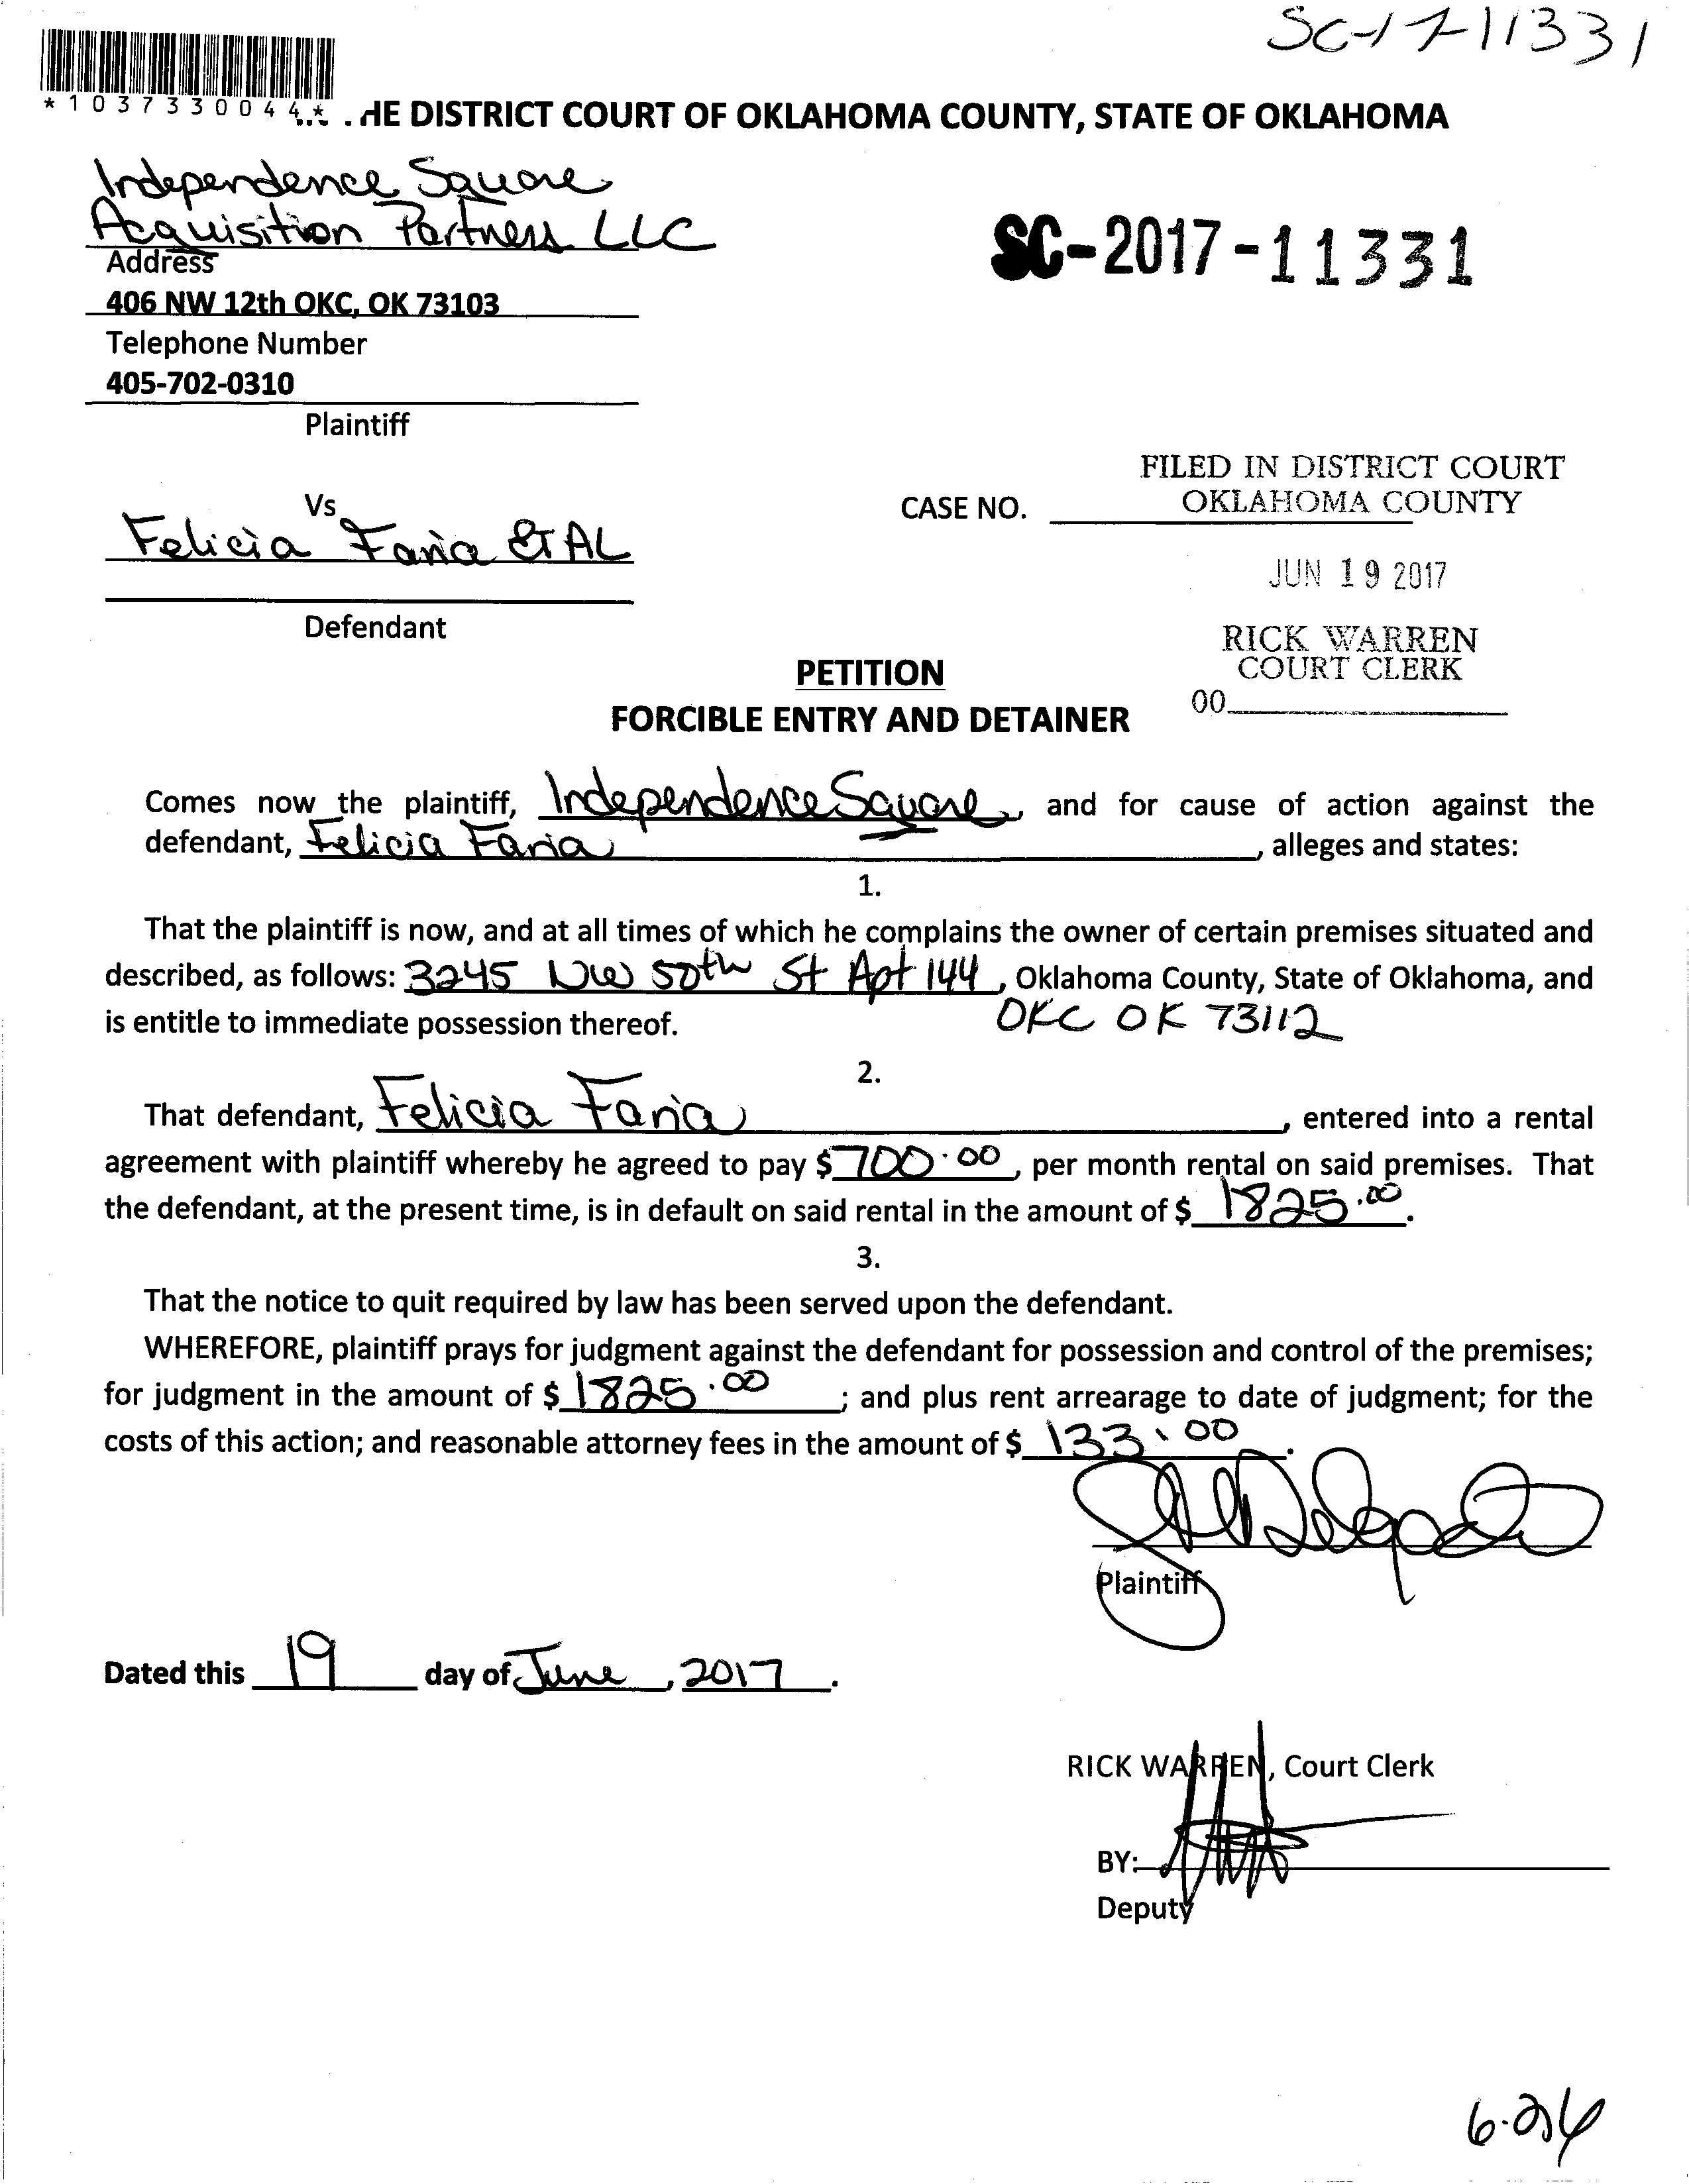 SC-17-11331
*1037330044*
HE DISTRICT COURT OF OKLAHOMA COUNTY, STATE OF OKLAHOMA
Independence Square
Acquisition Partners LLC
Address
406 NW 12th OKC, OK 73103
Telephone Number
405-702-0310
Plaintiff
SC-2017-11331
Vs
Felicia Faria ET AL
Defendant
CASE NO.
FILED IN DISTRICT COURT
OKLAHOMA COUNTY
JUN 19 2017
RICK WARREN
COURT CLERK
00
PETITION
FORCIBLE ENTRY AND DETAINER
Comes now the plaintiff, Independence Square, and for cause of action against the
defendant, Felicia Faria, alleges and states:
1.
That the plaintiff is now, and at all times of which he complains the owner of certain premises situated and
described, as follows: 3245 NW 50th St Apt 144, Oklahoma County, State of Oklahoma, and
is entitle to immediate possession thereof. OKC OK 73112
2.
That defendant, Felicia Faria, entered into a rental
agreement with plaintiff whereby he agreed to pay $700.00, per month rental on said premises. That
the defendant, at the present time, is in default on said rental in the amount of $ 1825.00.
3.
That the notice to quit required by law has been served upon the defendant.
WHEREFORE, plaintiff prays for judgment against the defendant for possession and control of the premises;
for judgment in the amount of $ 1825.00; and plus rent arrearage to date of judgment; for the
costs of this action; and reasonable attorney fees in the amount of $ 133.00.
Plaintiff
Dated this 19 day of June, 2017.
RICK WARREN, Court Clerk
BY:
Deputy
6.26